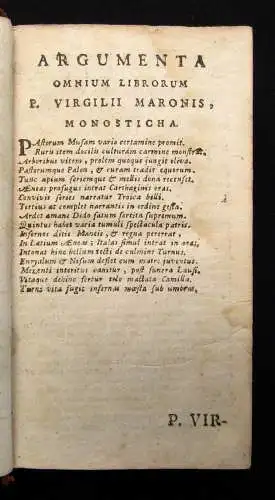 ARGUMENTA
OMNIUM LIBRORUM
P. VIRGILII MARONIS,
MONOSTICHA.
PAstorum Musam vario certamine promit.
Ruris item docilis culturam carmine monstrat,
Arboribus vitem, prolem quoque jungit oliva.
Pastorumque Palen, & curam tradit equorum.
Tunc apium seriemque & mellis dona recenset.
Æneas profugus intrat Carthaginis oras.
Convivis series narratur Troica belli.
Tertius at complet narrantis in ordine gesta.
Ardet amans Dido fatum sortita supremum.
Quintus habet varia tumuli spectacula patris.
Infernos ditis Maneis, & regna pererrat,
In Latium Æneas; Italas simul intrat in oras,
Intonat hinc bellum tecti de culmine Turnus.
Euryalum & Nisum deflet cum matre juventus.
Mezenti interitus canitur, post funera Lausi,
Vitaque dehinc fertur telo mactata Camilla.
Turni vita fugit infernas mæsta sub umbras,
P. VIR-